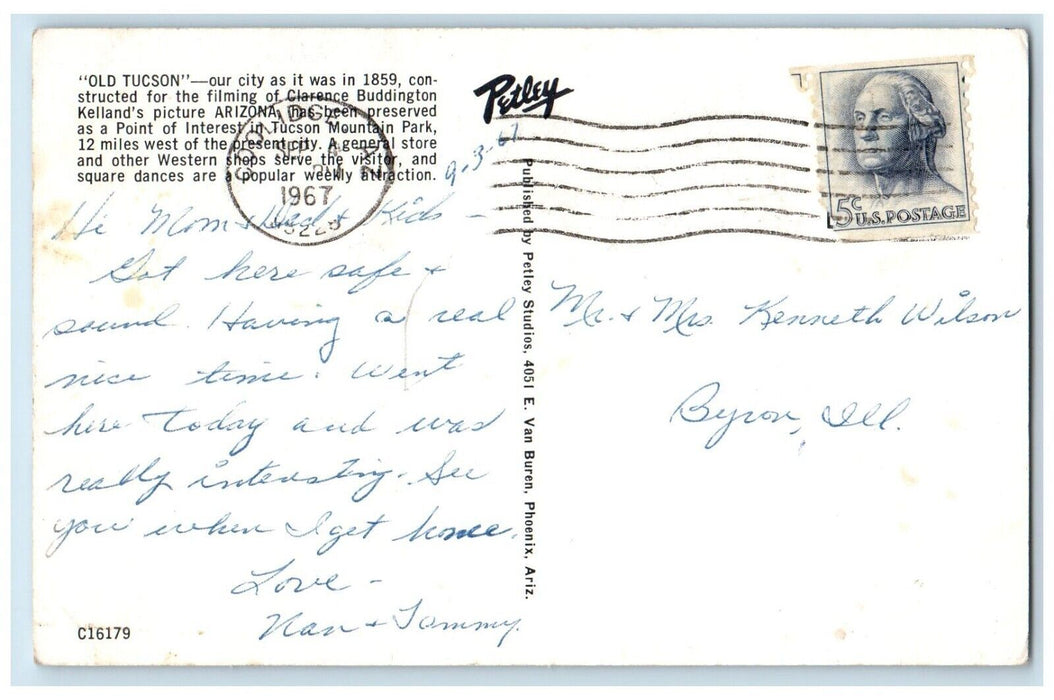 "OLD TUCSON"—our city as it was in 1859, con-
structed for the filming of Clarence Buddington
Kelland's picture ARIZONA, has been preserved
as a Point of Interest in Tucson Mountain Park,
12 miles west of the present city. A general store
and other Western shops serve the visitor, and
square dances are a popular weekly attraction.
Petley
COOLIDGE
1967
85228
9.3.67
5c
U.S. POSTAGE
Hi Mom + Dad + Kids –
Got here safe +
sound. Having a real
nice time. Went
here today and was
really interesting. See
you when I get home.
Love –
Nan + Tommy.
C16179
Published by Petley Studios, 4051 E. Van Buren, Phoenix, Ariz.
Mr. + Mrs. Kenneth Wilson
Byron, Ill.